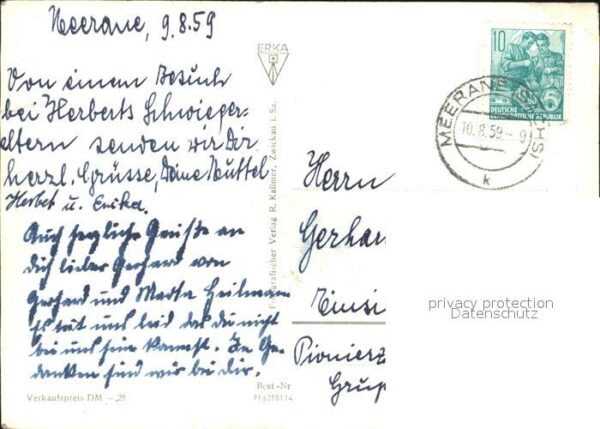 Meerane, 9.8.59
Von einem Besuch
bei Herberts Schwieger-
eltern senden wir Dir
herzl. Grüsse, Deine Muttel
Herbet u. Erika.
Auch herzliche Grüße an
dich lieber Gerhard von
Gerhard und Martha Heilmann
Es tut uns leid das du nicht
bei uns sein kannst. In Ge-
danken sind wir bei dir.
Verkaufspreis DM -,25
ERKA
Fotografischer Verlag R. Kallmer, Zwickau i. Sa.
Best.-Nr
10
DEUTSCHE
DEMOKRATISCHE REPUBLIK
MEERANE (SACHS)
10.8.59-9
k
Herrn
Gerhar
Einsi
Pionierz
Grup
privacy protection
Datenschutz